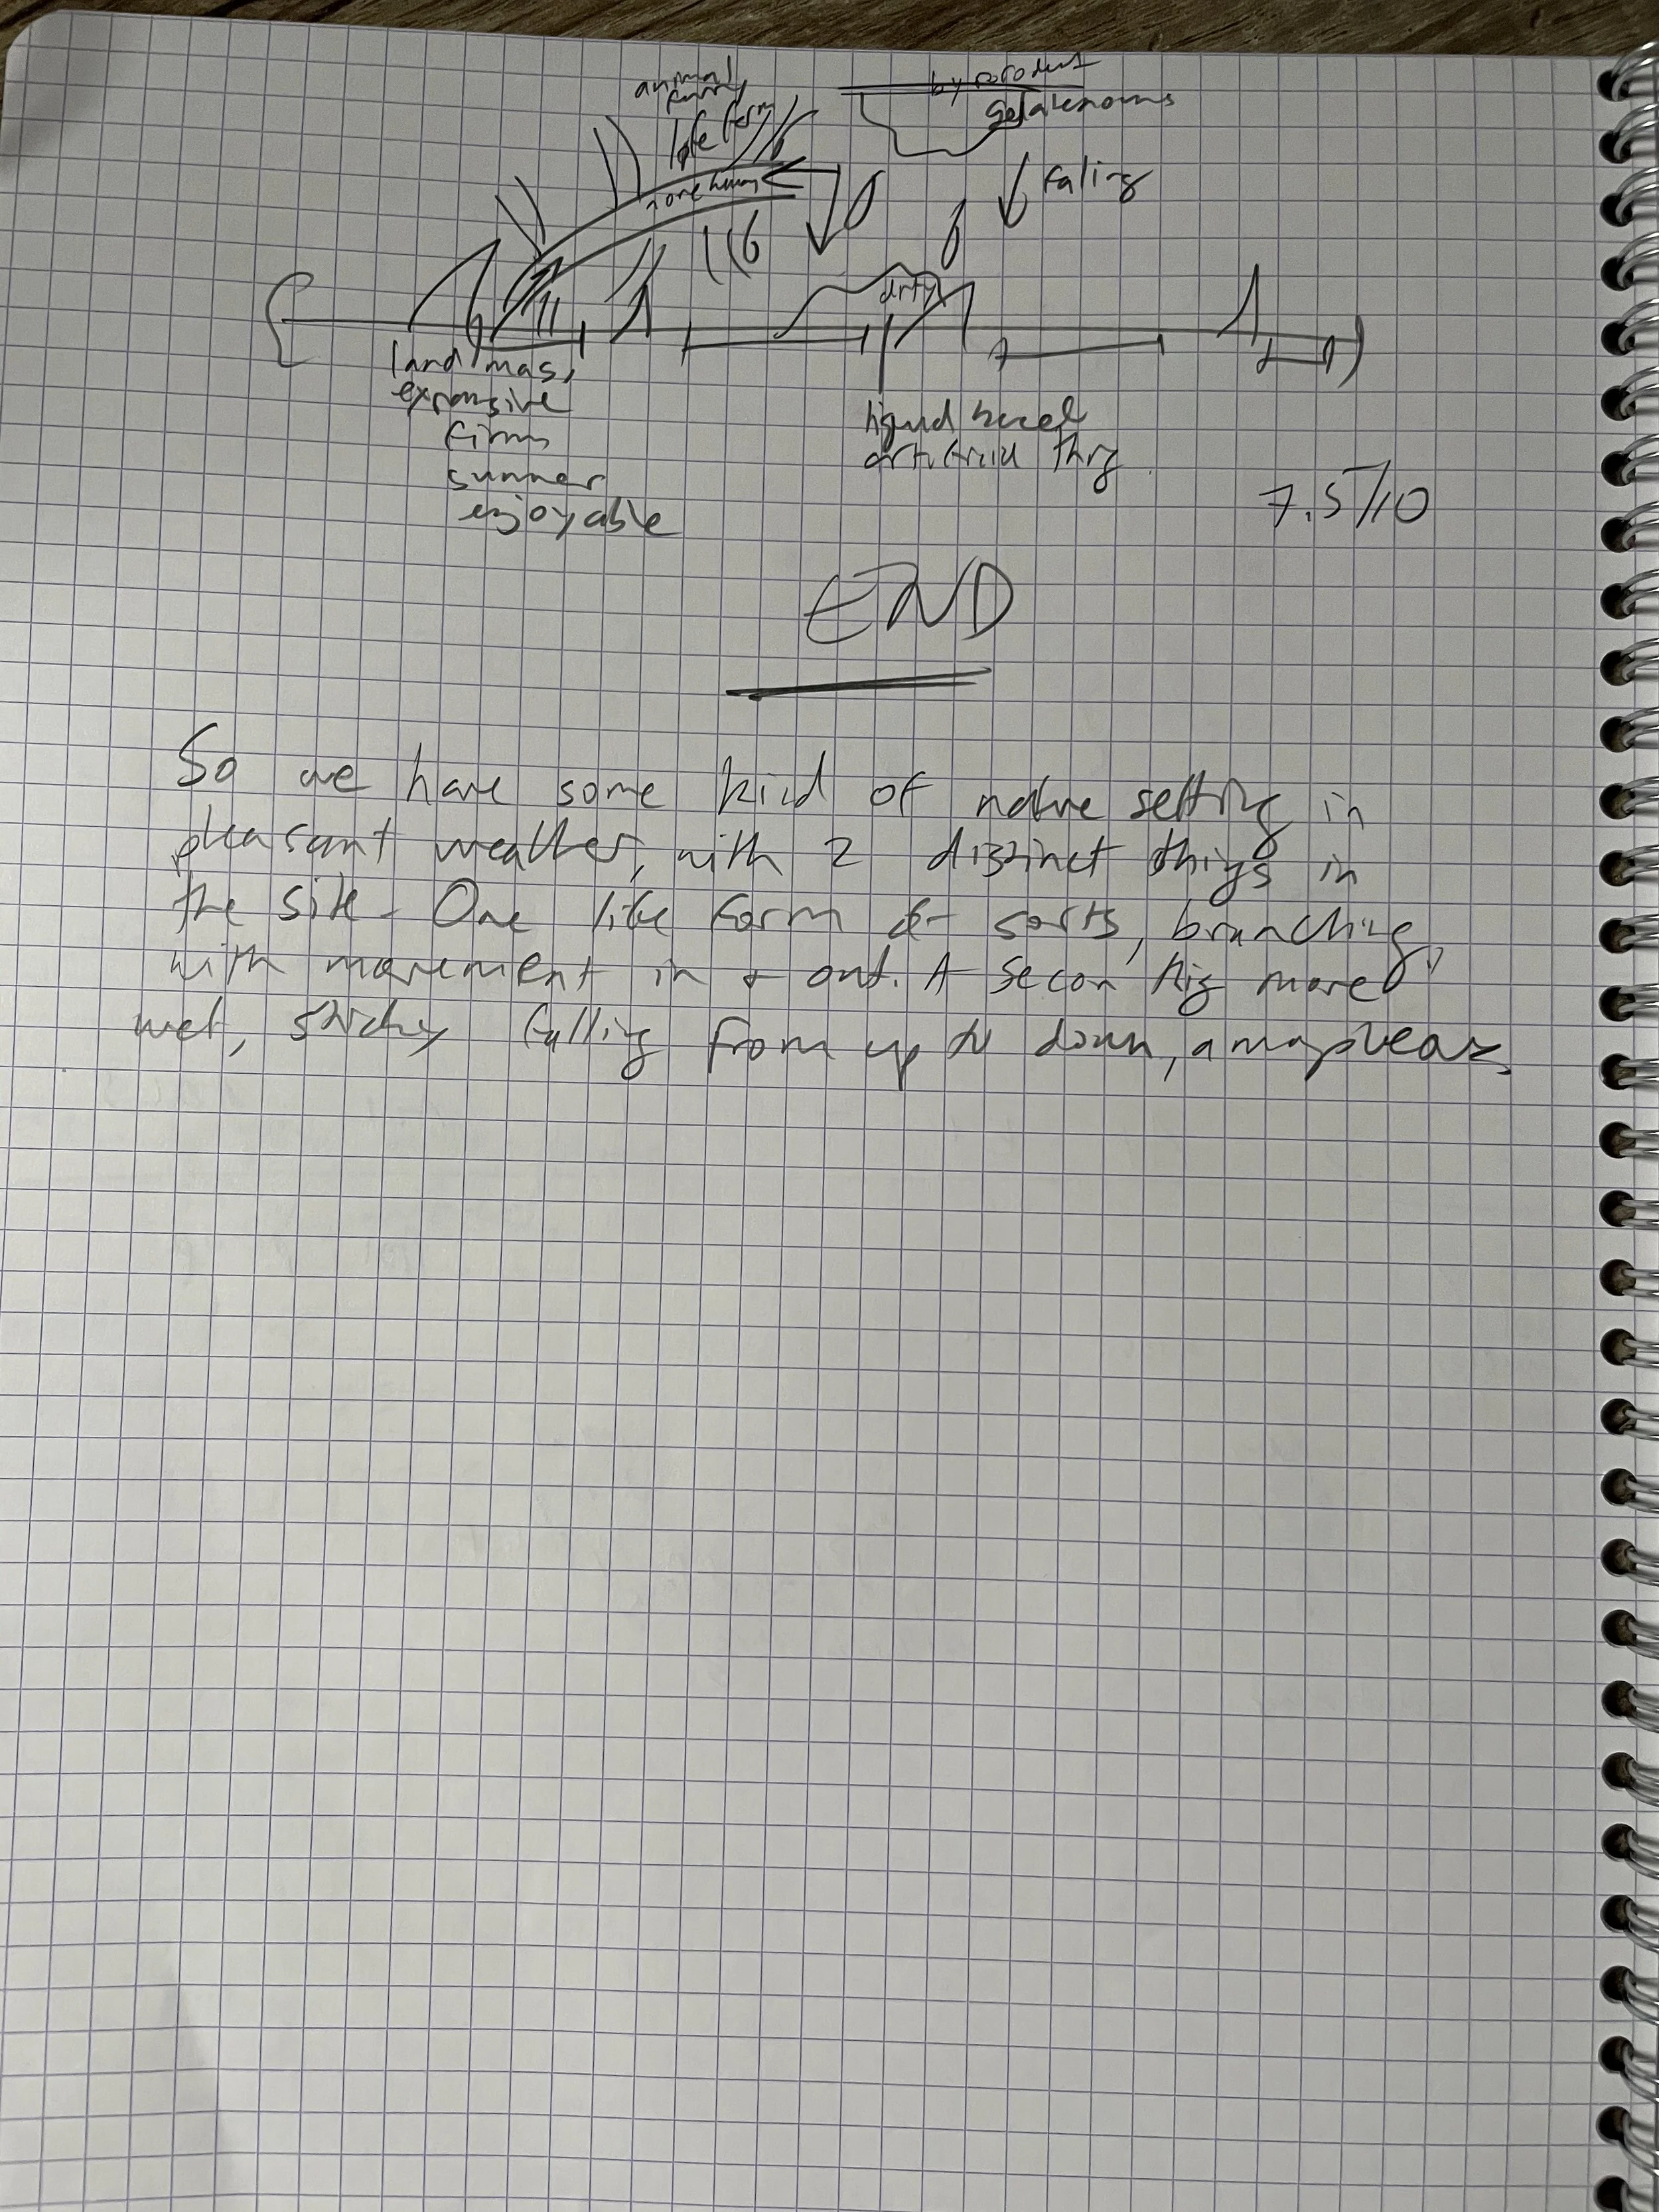 animal
furry
life form
byproduct
Gelatenous
falling
dirty
land mass,
expansive
firm
summer
enjoyable
liquid based
artificial thing
7.5/10
END
So we have some kind of nature setting in
pleasant weather, with 2 distinct things in
the site. One life form of sorts, branching,
with movement in & out. A secon thig more
wet, sticky falling from up to down,